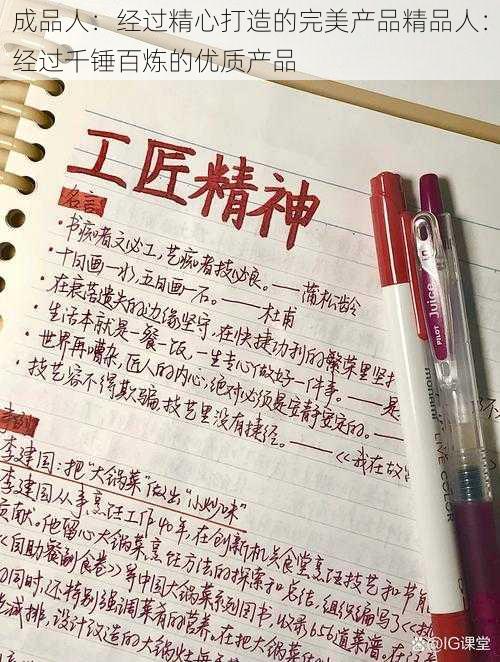 成品人：经过精心打造的完美产品精品人：
经过千锤百炼的优质产品
工匠精神
名言
·书痴者文必工，艺痴者技必良。——蒲松龄
·十日画一水，五日画一石。——杜甫
·在衰落遗失的边缘坚守，在快捷功利的繁荣里坚持
·生活本就是一餐一饭，一生专心做好一件事。——是
·世界再嘈杂，匠人的内心，绝对必须是安静安定的。——
·技艺容不得欺骗，技艺里没有捷径。——《我在故
事例
李建国：把“大锅菜”做出“小炒味”
李建国从事烹饪工作40年，在创新机关食堂烹饪技艺和节能
贡献。他留心大锅菜烹饪方法的探索和总结，组织编写了《
《自助餐副食卷》等中国大锅菜系列图书，收录656道菜谱。在
同时，还特别强调菜肴的营养。在把大锅菜
能减排，设计改造的大锅灶
PILOT
Juice
@IG课堂